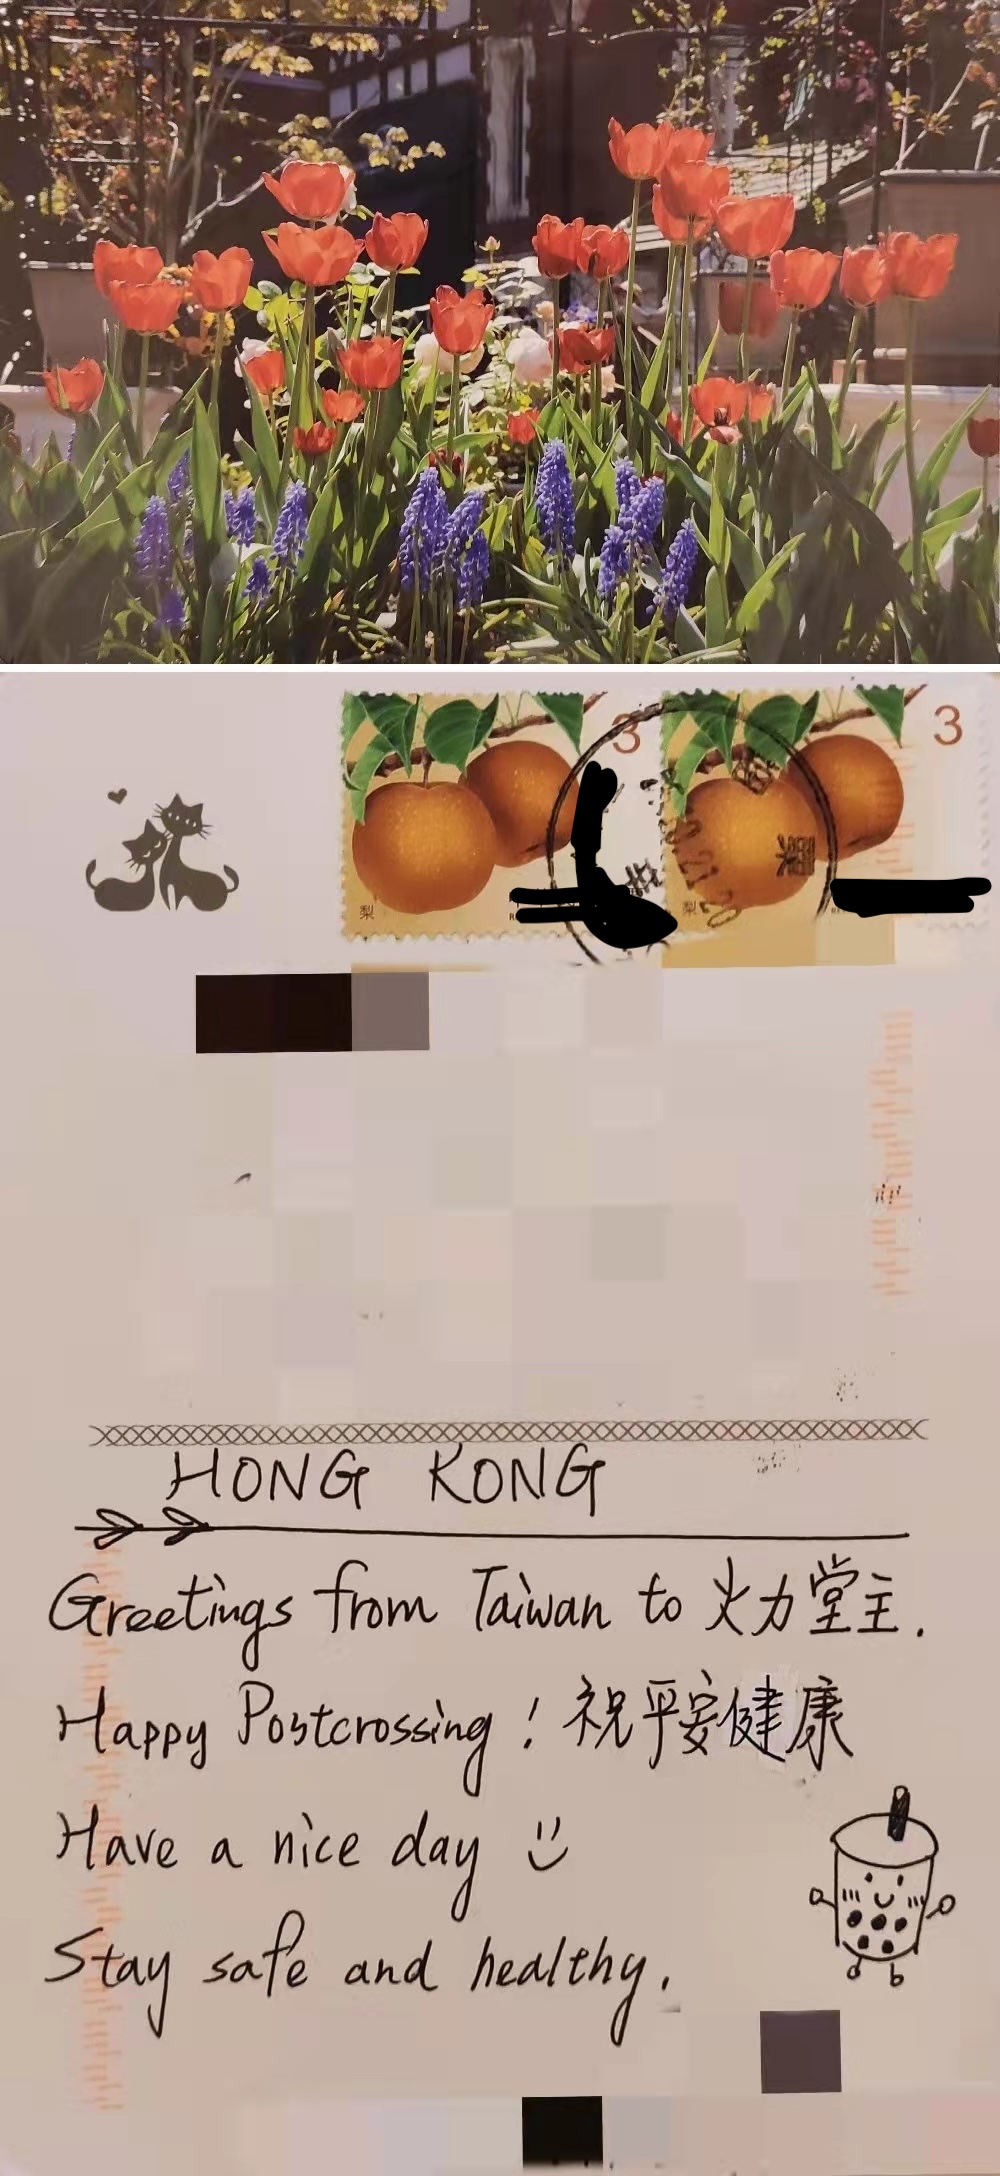 3
3
梨
梨
HONG KONG
Greetings from Taiwan to 火力堂主.
Happy Postcrossing! 祝平安健康
Have a nice day
Stay safe and healthy.